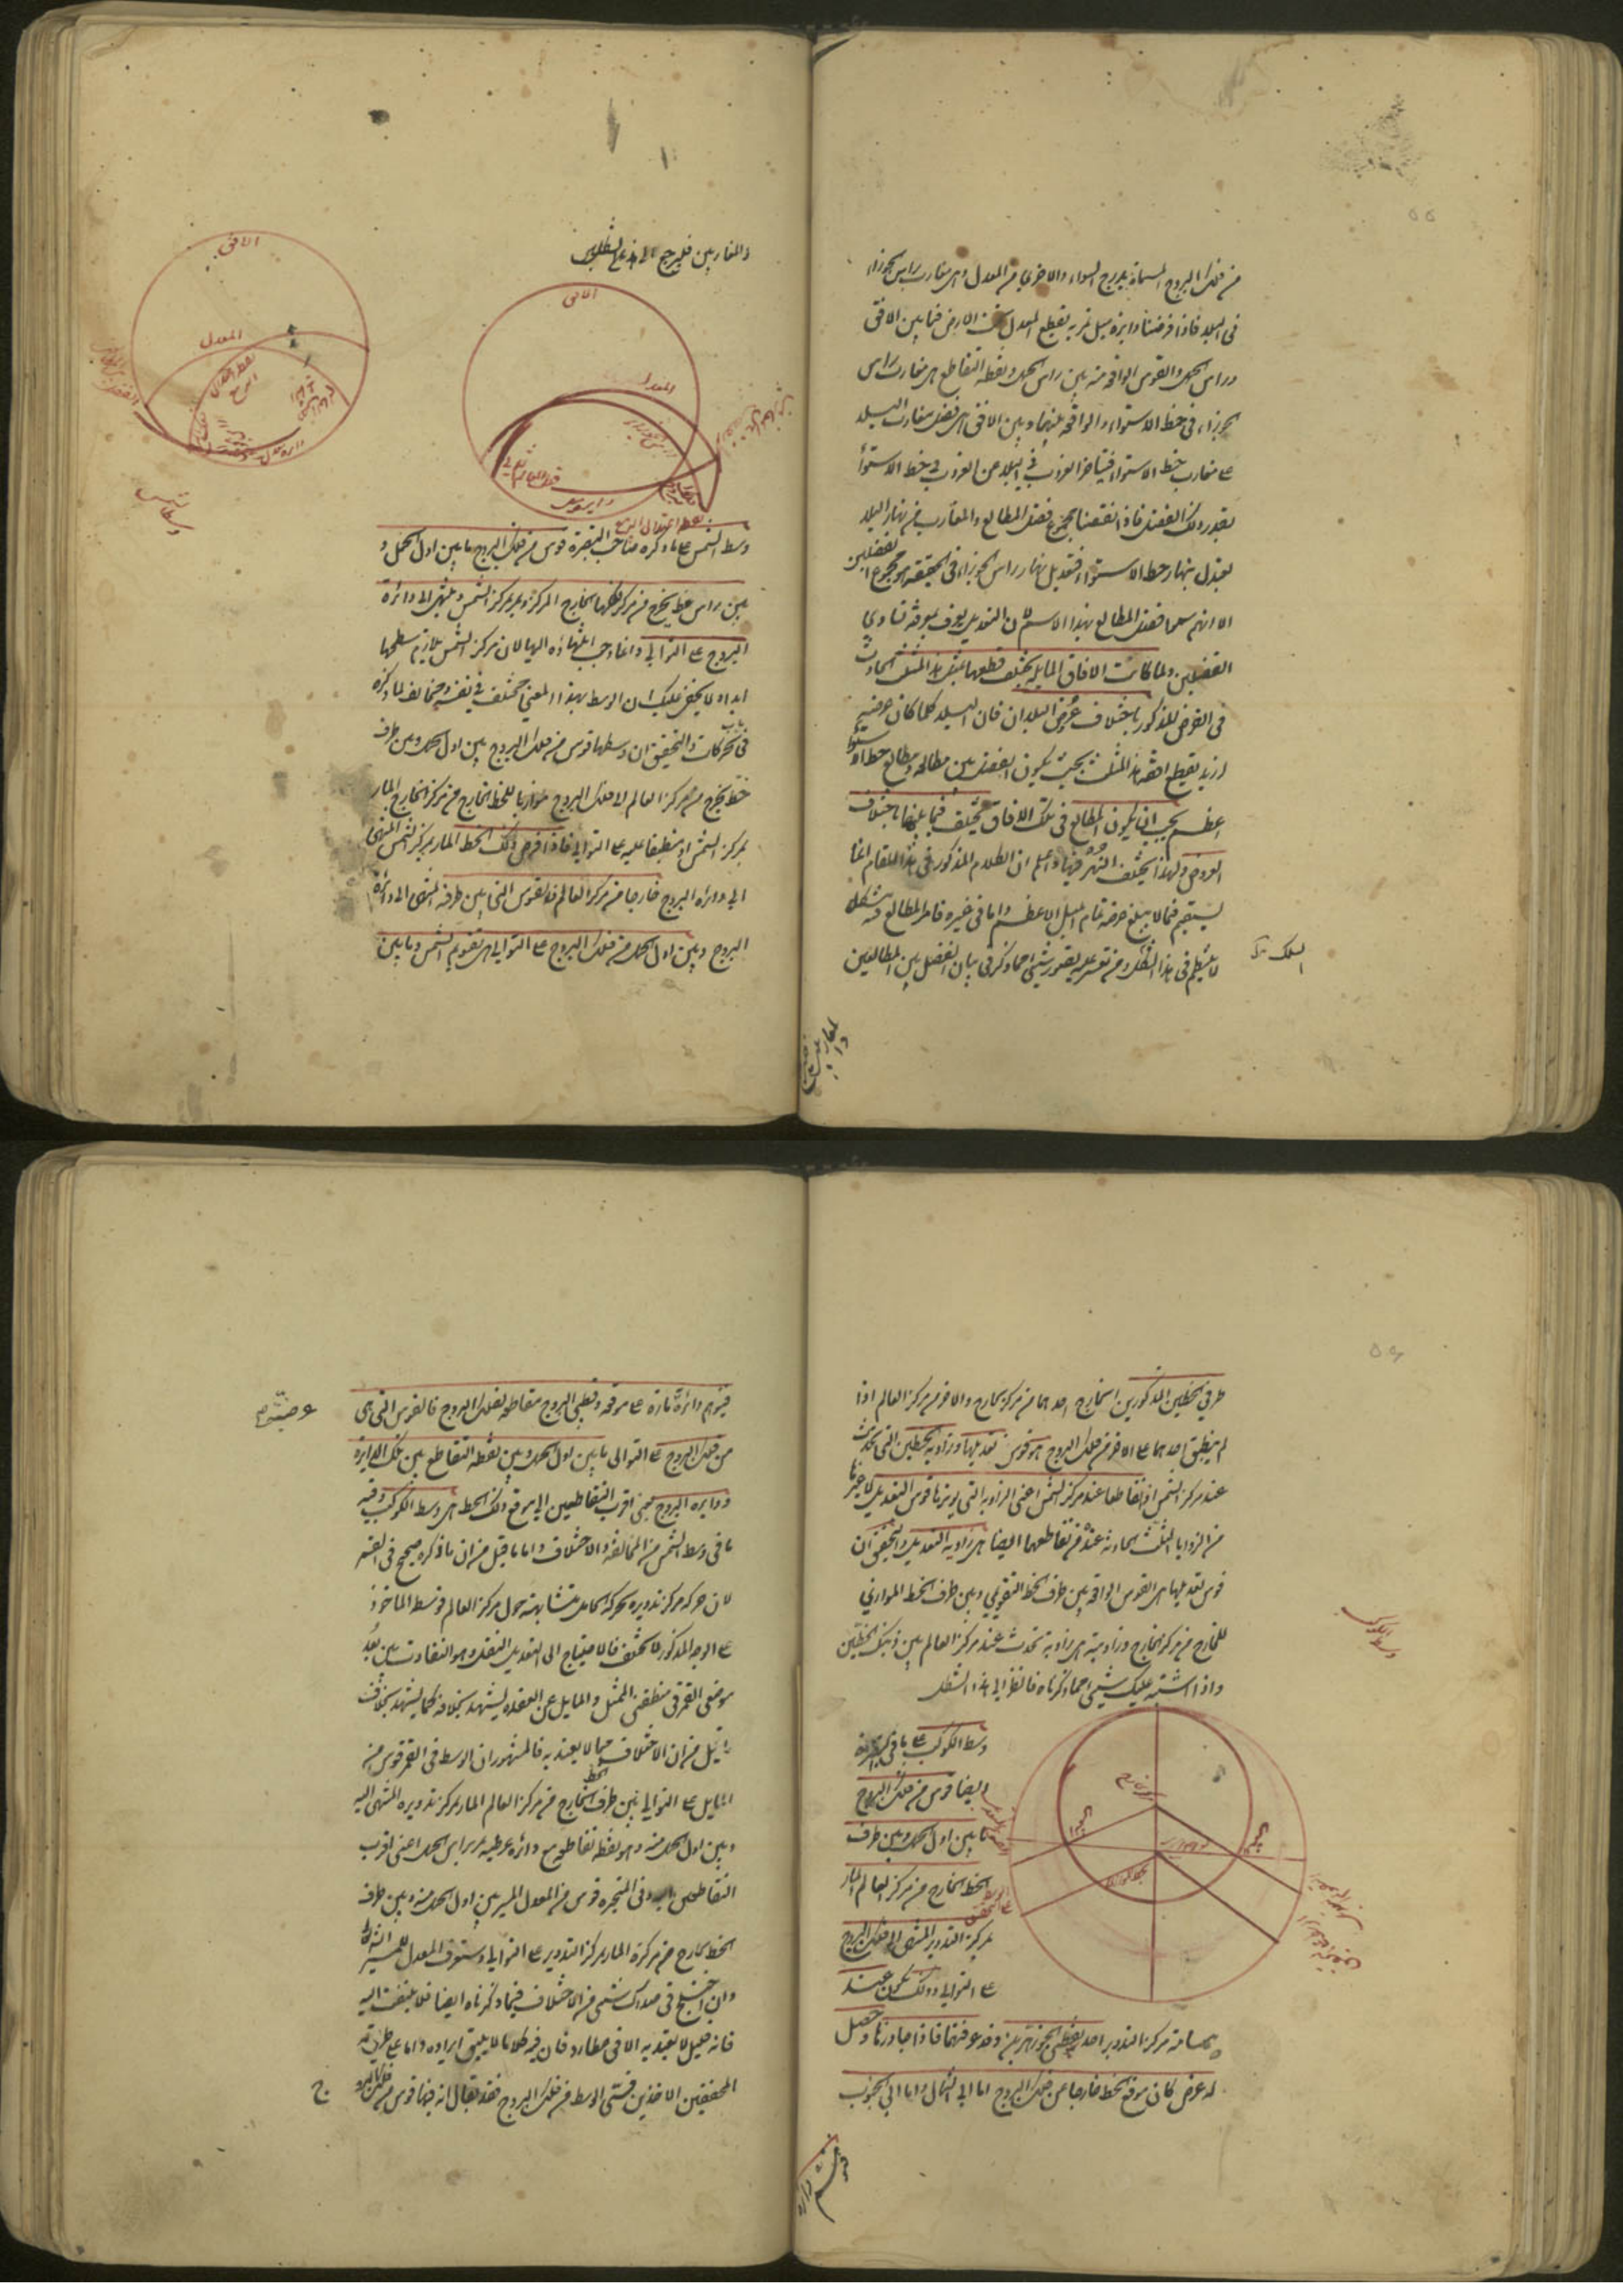 من فلك البروج المسماة بدرج السواء والاخرى من المعدل وهى مغارب راس الجوزاء
فى البلد فاذا فرضنا دايرة ميل تمر به يقطع المعدل تحت الارض فما بين الافق
وراس الحمل والقوس الواقعة منه بين راس الحمل ونقطة التقاطع هى مغارب راس
الجوزاء فى خط الاستواء والواقعة بينها وبين الافق هى فضل مغارب البلد
على مغارب خط الاستواء فيتاخر الغروب فى البلد عن الغروب فى خط الاستواء
بقدر ذلك الفضل فاذا نقصنا مجموع فضل المطالع والمغارب من نهار البلد
يعتدل بنهار خط الاستواء فتعديل نهار راس الجوزاء فى الحقيقة هو مجموع الفضلين
الا انهم سموا فضل المطالع بهذا الاسم لان التعديل يعرف بمعرفته لتساوى
الفضلين ولما كانت الافاق المايلة يختلف قطعها لمثل هذا المثلث الحادث
فى الفرض المذكور باختلاف عروض البلدان فان البلد كلما كان عرضه
ازيد يقطع افقه هذا المثلث بحيث يكون الفضل بين مطالعه ومطالع خط الاستواء
اعظم يجب ان يكون المطالع فى تلك الافاق مختلفة فيما بينها باختلاف
العروض ولهذا يختلف النهر فيها واعلم ان الكلام المذكور فى هذا المقام انما
يستقيم فيما لا يبلغ عرضه تمام الميل الاعظم واما فى غيره فامر المطالع فيه مشكل
لا ينتظم فى هذا الشكل ومن تعسر عليه تصور شئ مما ذكر فى بيان الفضل بين المطالعين
والمغاربين فليرجع الى هذين الشكلين
الافق
المعدل
الافق
المعدل
نقطة اعتدال الربيع
وسط الشمس على ما ذكره صاحب التبصرة قوس من فلك البروج ما بين اول الحمل و
بين راس خط يخرج من مركز فلكها الخارج المركز ويمر بمركز الشمس وينتهى الى دائرة
البروج على التوالى وانما وجب انتهاؤه اليها لان مركز الشمس يلازم سطحها
ابدا ولا يخفى عليك ان الوسط بهذا المعنى مختلف فى نفسه ومخالف لما ذكره
فى باب الحركات والتحقيق ان وسطها قوس من فلك البروج بين اول الحمل وبين طرف
خط يخرج من مركز العالم الى فلك البروج موازيا للخط الخارج من مركز الخارج المار
بمركز الشمس او منطبقا عليه على التوالى فاذا فرض ذلك الخط المار بمركز الشمس المنتهى
الى دائرة البروج خارجا من مركز العالم فالقوس التى بين طرفه المنتهى الى دائرة
البروج وبين اول الحمل من فلك البروج على التوالى هى تقويم الشمس وما بين
طرفى الخطين المذكورين الخارج احدهما من مركز الخارج والاخر من مركز العالم اذا
لم ينطبق احدهما على الاخر من فلك البروج هو قوس تعديلها وزاوية الخطين التى تحدث
عند مركز الشمس اذا تقاطعا عند مركز الشمس اعنى الزاوية التى يوترها قوس التعديل لا غيرها
من الزوايا الثلث الحادثة عنده من تقاطعهما ايضا هى زاوية التعديل والتحقيق ان
قوس تعديلها هى القوس الواقعة بين طرف الخط التقويمى وبين طرف الخط الموازى
للخارج من مركز الخارج وزاويته هى زاوية تحدث عند مركز العالم بين ذينك الخطين
واذا اشتبه عليك شئ مما ذكرناه فانظر الى هذا الشكل
وسط الكوكب
وسط الكوكب على ما فى التبصرة
ايضا قوس من فلك البروج
ما بين اول الحمل وبين طرف
الخط الخارج من مركز العالم المار
بمركز التدوير المنتهى الى فلك البروج
على التوالى وذلك يكون عند
مسامتة مركز التدوير احد نقطتى الجوزهرين وقد عرفتهما فاذا جاوزها وحصل
له عرض كان موقع الخط خارجا عن فلك البروج اما الى الشمال واما الى الجنوب
فيتوهم دائرة مارة على موقعه وقطبى البروج مقاطعة لفلك البروج فالقوس التى هى
من فلك البروج على التوالى ما بين اول الحمل وبين نقطة التقاطع بين تلك الدايرة
ودايرة البروج اعنى اقرب التقاطعين الى موقع ذلك الخط هى وسط الكوكب وفيه
ما فى وسط الشمس من المخالفة والاختلاف واما ما قيل من ان ما ذكره صحيح فى القمر
لان حركة مركز تدويره بحركة الحامل متشابهة حول مركز العالم فوسط الماخوذ
على الوجه المذكور لا يختلف فلا يحتاج الى التعديل النقل وهو التفاوت بين بعد
موضعى القمر فى منطقتى الممثل والمايل عن العقدة يشهد بخلافه كما يشهد بخلاف
ما قيل من ان الاختلاف مما لا يعتد به فالمشهور ان الوسط فى القمر قوس من
المايل على التوالى بين طرف الخط الخارج من مركز العالم المار بمركز تدويره المنتهى اليه
وبين اول الحمل منه وهو نقطة تقاطعه مع دائرة عرضية تمر براس الحمل اعنى اقرب
التقاطعين اليه وفى المتحيرة قوس من المعدل المسير بين اول الحمل منه وبين طرف
الخط الخارج من مركزه المار بمركز التدوير على التوالى وستعرف المعدل للمسير
وان اختلج فى صدرك شئ من الاختلاف فيما ذكرناه ايضا فلا يلتفت اليه
فانه قليل لا يعتد به الا فى عطارد فان فيه كلاما لا يليق ايراده واما على طريقة
المحققين الاخذين فى الوسط من فلك البروج فقد يقال انه فيها قوس من فلك البروج